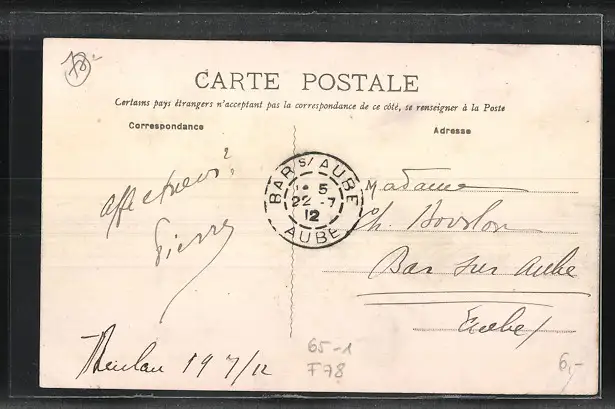 78
CARTE POSTALE
Certains pays étrangers n'acceptent pas la correspondance de ce côté, se renseigner à la Poste
Correspondance
Adresse
BAR S/ AUBE
5
22 -7
12
AUBE
Madame
Ch.
Bar sur Aube
Aube
Pierre
Meulan 19 7/12
65-1
F78
6,-